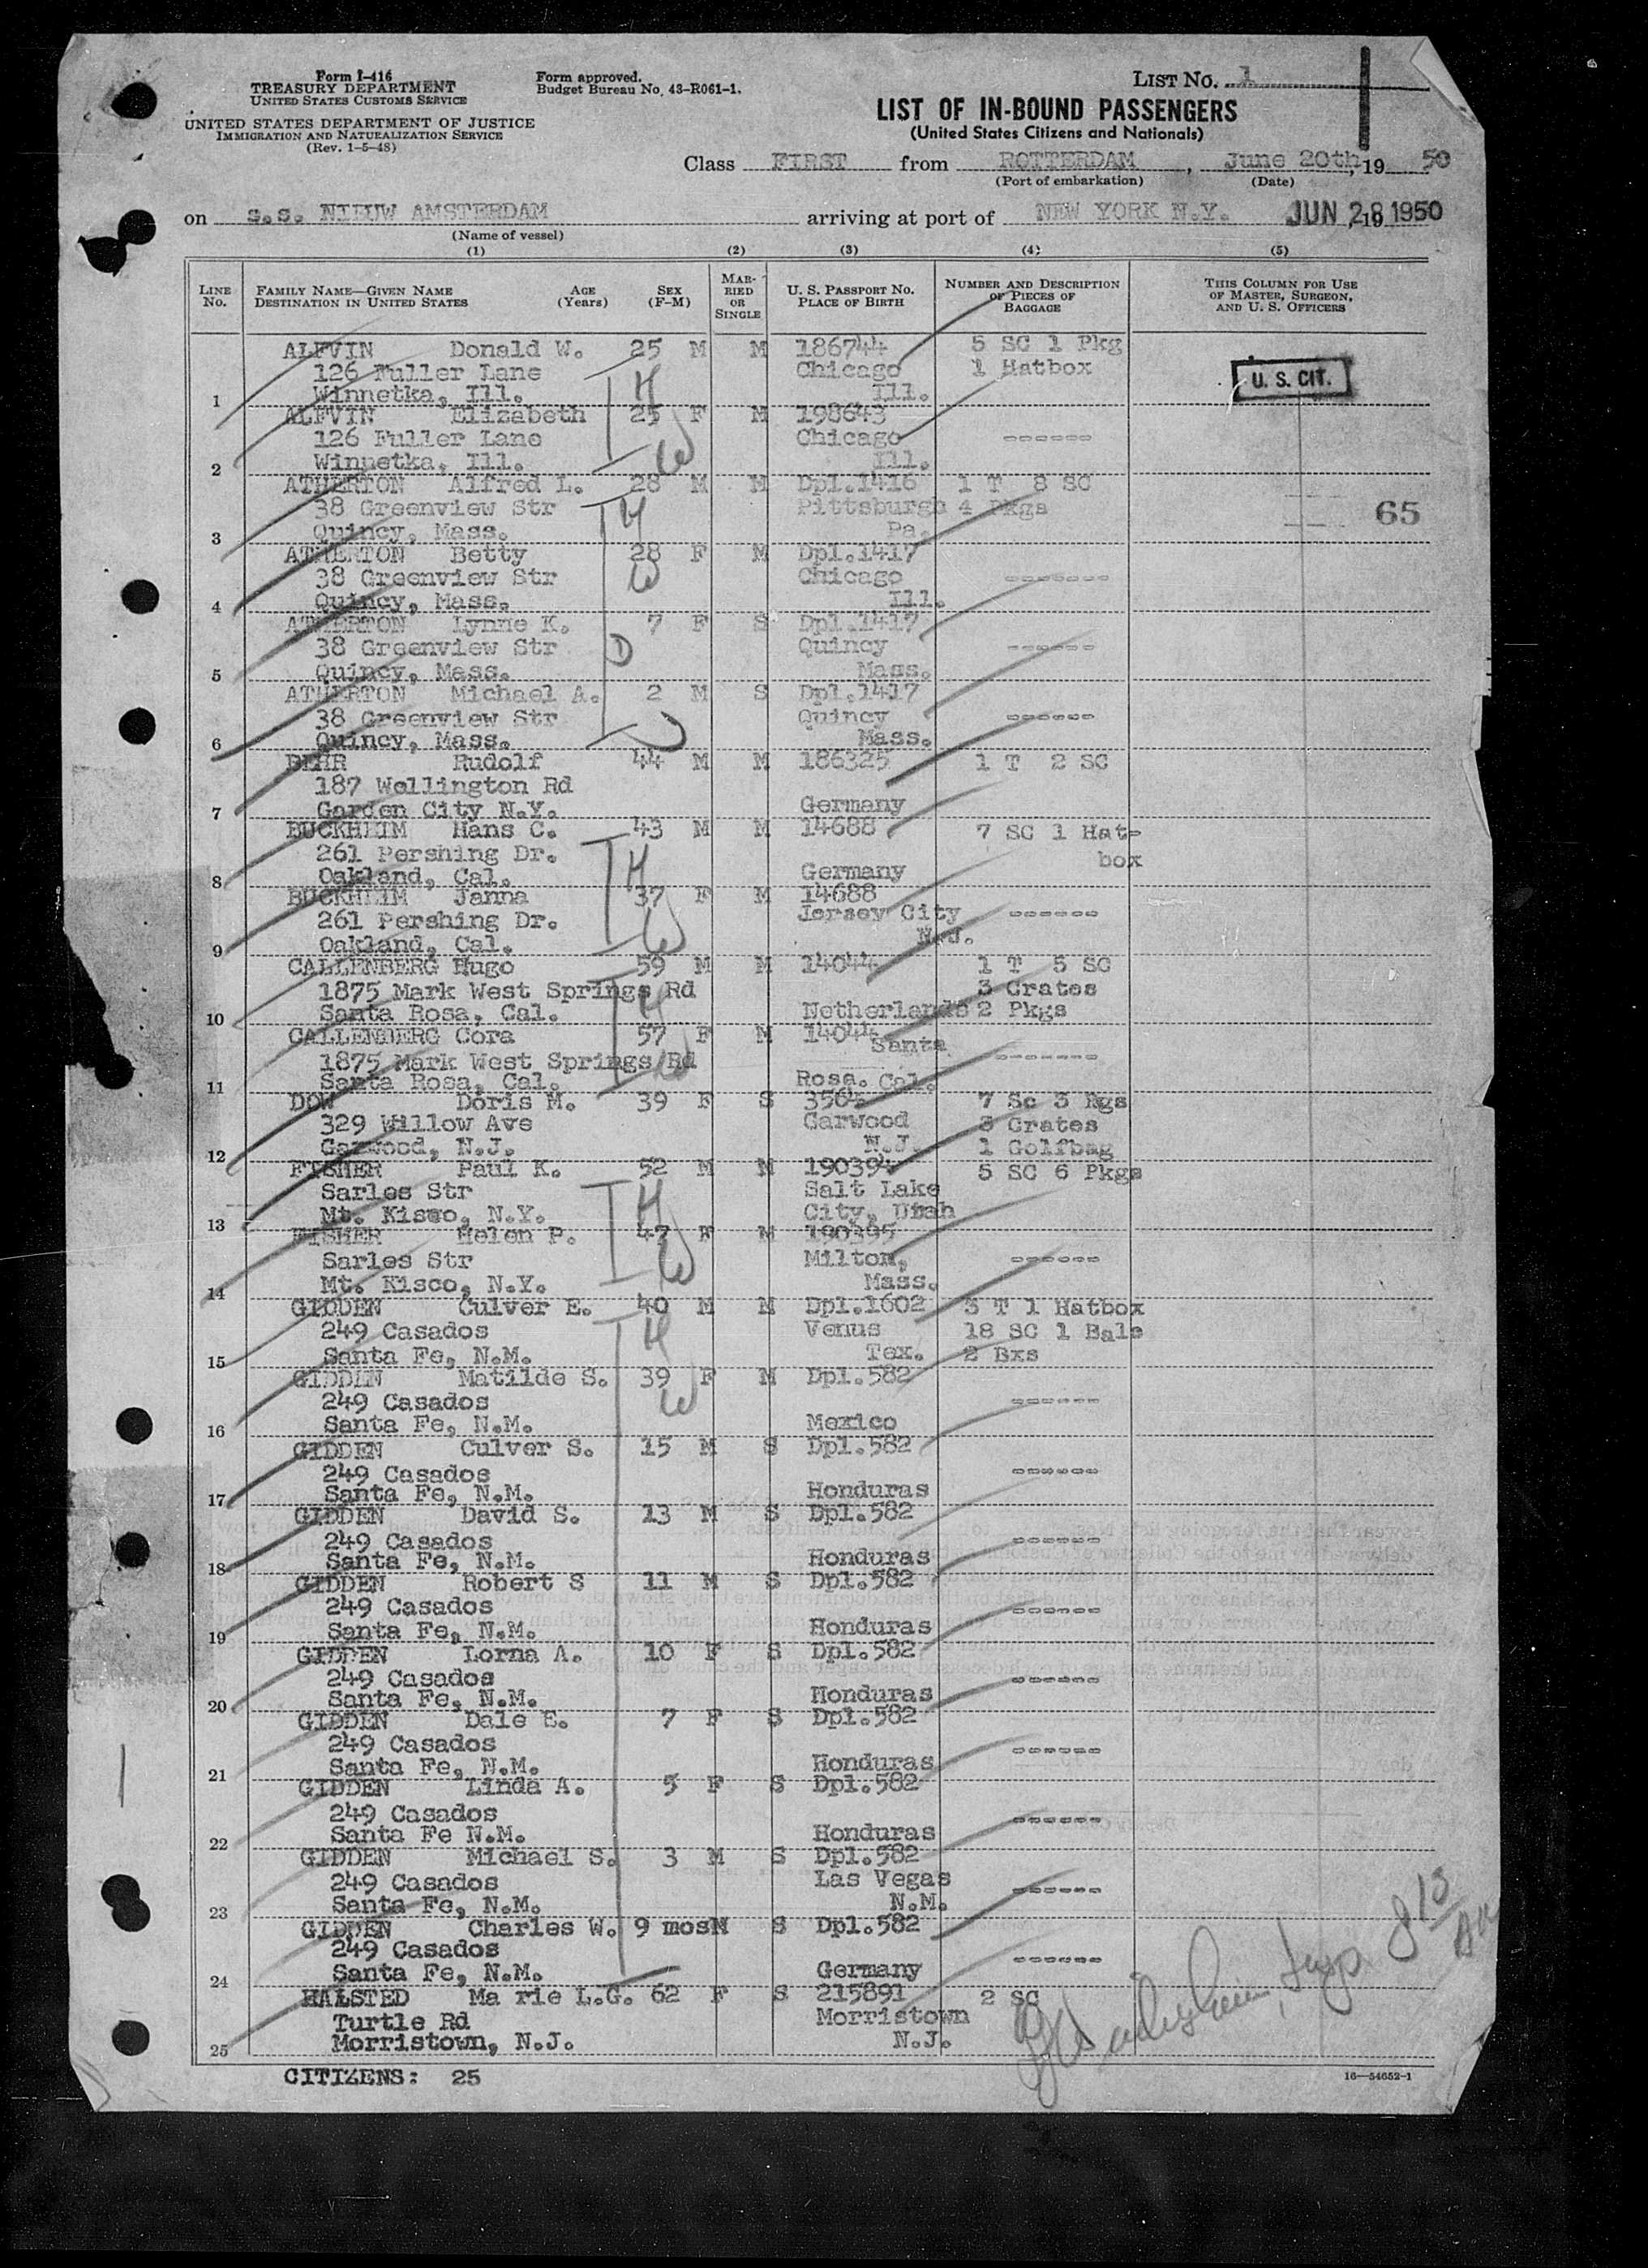 Form I-416
TREASURY DEPARTMENT
UNITED STATES CUSTOMS SERVICE
UNITED STATES DEPARTMENT OF JUSTICE
IMMIGRATION AND NATURALIZATION SERVICE
(Rev. 1-5-48)
Form approved.
Budget Bureau No. 43-R061-1.
LIST NO. 1
LIST OF IN-BOUND PASSENGERS
(United States Citizens and Nationals)
Class FIRST from ROTTERDAM, June 20th, 19 50
(Port of embarkation) (Date)
on s.s. NIEUW AMSTERDAM arriving at port of NEW YORK N.Y. JUN 28 1950
(Name of vessel)
(1) (2) (3) (4) (5)
LINE NO. FAMILY NAME—GIVEN NAME DESTINATION IN UNITED STATES AGE (Years) SEX (F-M) MARRIED OR SINGLE U. S. PASSPORT NO. PLACE OF BIRTH NUMBER AND DESCRIPTION OF PIECES OF BAGGAGE THIS COLUMN FOR USE OF MASTER, SURGEON, AND U. S. OFFICERS
ALFVIN Donald W. 25 M M 186744 5 SC 1 Pkg
126 Fuller Lane Chicago 1 Hatbox U. S. CIT.
1 Winnetka, Ill. H Ill.
ALFVIN Elizabeth 25 F M 198643
126 Fuller Lane Chicago ------
2 Winnetka, Ill. W Ill.
ATHERTON Alfred L. 28 M M Dpl.1416 1 T 8 SC
38 Greenview Str H Pittsburgh 4 Pkgs 65
3 Quincy, Mass. Pa.
ATHERTON Betty 28 F M Dpl.1417
38 Greenview Str W Chicago -------
4 Quincy, Mass. Ill.
ATHERTON Lynne K. 7 F S Dpl.1417
38 Greenview Str D Quincy ------
5 Quincy, Mass. Mass.
ATHERTON Michael A. 2 M S Dpl.1417
38 Greenview Str Quincy ------
6 Quincy, Mass. Mass.
BEHR Rudolf 44 M M 186325 1 T 2 SC
187 Wellington Rd
7 Garden City N.Y. Germany
BUCKHEIM Hans C. 43 M M 14688 7 SC 1 Hat-
261 Pershing Dr. H box
8 Oakland, Cal. Germany
BUCKHEIM Janna 37 F M 14688
261 Pershing Dr. W Jersey City ------
9 Oakland, Cal. N.J.
CALLENBERG Hugo 59 M M 14044 1 T 5 SC
1875 Mark West Springs Rd H 3 Crates
10 Santa Rosa, Cal. Netherlands 2 Pkgs
CALLENBERG Cora 57 F M 14044 Santa
1875 Mark West Springs Rd W -------
11 Santa Rosa, Cal. Rosa. Cal.
DOW Doris M. 39 F S 3564 7 Sc 3 Rgs
329 Willow Ave Garwood 3 Crates
12 Garwood, N.J. N.J. 1 Golfbag
FISHER Paul K. 52 M M 190394 5 SC 6 Pkgs
Sarles Str H Salt Lake
13 Mt. Kisco, N.Y. City, Utah
FISHER Helen P. 47 F M 190395
Sarles Str W Milton, ------
14 Mt. Kisco, N.Y. Mass.
GIDDEN Culver E. 40 M M Dpl.1602 3 T 1 Hatbox
249 Casados H Venus 18 SC 1 Bale
15 Santa Fe, N.M. Tex. 2 Bxs
GIDDEN Matilde S. 39 F M Dpl.582
249 Casados W ------
16 Santa Fe, N.M. Mexico
GIDDEN Culver S. 15 M S Dpl.582
249 Casados ------
17 Santa Fe, N.M. Honduras
GIDDEN David S. 13 M S Dpl.582
249 Casados ------
18 Santa Fe, N.M. Honduras
GIDDEN Robert S 11 M S Dpl.582
249 Casados ------
19 Santa Fe, N.M. Honduras
GIDDEN Lorna A. 10 F S Dpl.582
249 Casados ------
20 Santa Fe, N.M. Honduras
GIDDEN Dale E. 7 F S Dpl.582
249 Casados ------
21 Santa Fe, N.M. Honduras
GIDDEN Linda A. 5 F S Dpl.582
249 Casados ------
22 Santa Fe N.M. Honduras
GIDDEN Michael S. 3 M S Dpl.582
249 Casados Las Vegas ------
23 Santa Fe, N.M. N.M.
GIDDEN Charles W. 9 mos M S Dpl.582
249 Casados ------
24 Santa Fe, N.M. Germany
HALSTED Ma rie L.G. 62 F S 215891 2 SC
Turtle Rd Morristown
25 Morristown, N.J. N.J.
Insp. 8 15
CITIZENS: 25
16—54652-1